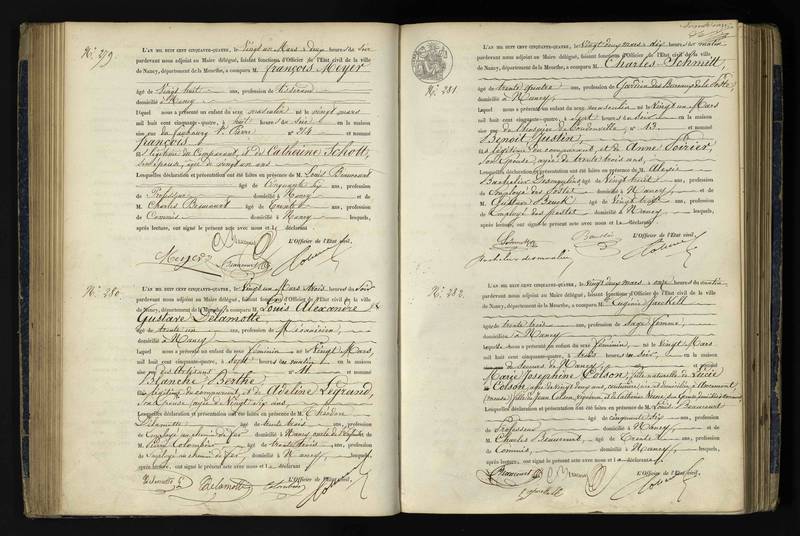 N.º 279
L'AN MIL HUIT CENT CINQUANTE-QUATRE, le Vingt un Mars à deux heures du Soir
pardevant nous adjoint au Maire délégué, faisant fonctions d'Officier de l'État civil de la ville
de Nancy, département de la Meurthe, a comparu M. François Meyer
âgé de Vingt huit ans, profession de
domicilié à Nancy
lequel nous a présenté un enfant du sexe masculin né le Vingt Mars
mil huit cent cinquante-quatre, à huit heures du Soir en la maison
sise rue du faubourg St Pierre n° 214 et nommé
François
fils légitime du Comparant, et de Catherine Schott,
son épouse, âgée de vingt six ans
Lesquelles déclaration et présentation ont été faites en présence de M. Louis Beaucourt
âgé de Cinquante six ans, profession
de Professeur domicilié à Nancy et de
M. Charles Beaucourt âgé de trente ans, profession
de Commis domicilié à Nancy lesquels,
après lecture, ont signé le présent acte avec nous et le déclarant
L'Officier de l'État civil,
Meyer
Beaucourt
N.º 280
L'AN MIL HUIT CENT CINQUANTE-QUATRE, le Vingt un Mars à trois heures du Soir
pardevant nous adjoint au Maire délégué, faisant fonctions d'Officier de l'État civil de la ville
de Nancy, département de la Meurthe, a comparu M. Louis Alexandre
Gustave Delamotte
âgé de trente un ans, profession de Mécanicien
domicilié à Nancy
lequel nous a présenté un enfant du sexe féminin né le Vingt Mars,
mil huit cent cinquante-quatre, à sept heures du matin en la maison
sise rue des Artisans n° 11 et nommé
Blanche Berthe
fille légitime du comparant, et de Adeline Legrand,
son épouse, âgée de vingt six ans
Lesquelles déclaration et présentation ont été faites en présence de M. Théodore
Delamotte âgé de trente trois ans, profession
de Employé au chemin de fer domicilié à Nancy, et de
M. Colombier âgé de trente trois ans, profession
de Employé au chemin de fer, domicilié à Nancy lesquels,
après lecture, ont signé le présent acte avec nous et le déclarant
L'Officier de l'État civil,
Delamotte Delamotte
N.º 281
L'AN MIL HUIT CENT CINQUANTE-QUATRE, le Vingt deux mars à dix heures du matin
pardevant nous adjoint au Maire délégué, faisant fonctions d'Officier de l'État civil de la ville
de Nancy, département de la Meurthe, a comparu M. Charles Schmitt,
âgé de trente quatre ans, profession de Gardien des Bureaux de la Poste
domicilié à Nancy
lequel nous a présenté un enfant du sexe masculin né le Vingt un Mars
mil huit cent cinquante-quatre, à sept heures du soir en la maison
sise rue n° 13 et nommé
Benoit Justin,
fils légitime du comparant, et de Anne Poirier,
son épouse, âgée de trente trois ans,
Lesquelles déclaration et présentation ont été faites en présence de M. Alexis
Bachelier âgé de Vingt huit ans, profession
de Employé des Postes domicilié à Nancy et de
M. Gustave âgé de Vingt trois ans, profession
de Employé des postes domicilié à Nancy lesquels,
après lecture, ont signé le présent acte avec nous et le déclarant
L'Officier de l'État civil,
N.º 282
L'AN MIL HUIT CENT CINQUANTE-QUATRE, le Vingt deux mars à onze heures du matin
pardevant nous adjoint au Maire délégué, faisant fonctions d'Officier de l'État civil de la ville
de Nancy, département de la Meurthe, a comparu M. Eugénie Jackell
âgée de trente trois ans, profession de Sage femme,
domiciliée à Nancy
laquelle nous a présenté un enfant du sexe féminin, né le Vingt Mars
mil huit cent cinquante-quatre, à trois heures du Soir, en la maison
de Secours de Nancy et nommé
Marie Joséphine Colson, fille naturelle de Lucie
Colson, âgée de vingt deux ans, couturière, domiciliée à
fille de Jean Colson, et de Catherine
Lesquelles déclaration et présentation ont été faites en présence de M. Louis Beaucourt
âgé de Cinquante six ans, profession
de Professeur domicilié à Nancy et de
M. Charles Beaucourt, âgé de trente ans, profession
de Commis, domicilié à Nancy lesquels,
après lecture, ont signé le présent acte avec nous et la déclarante
L'Officier de l'État civil,
Beaucourt